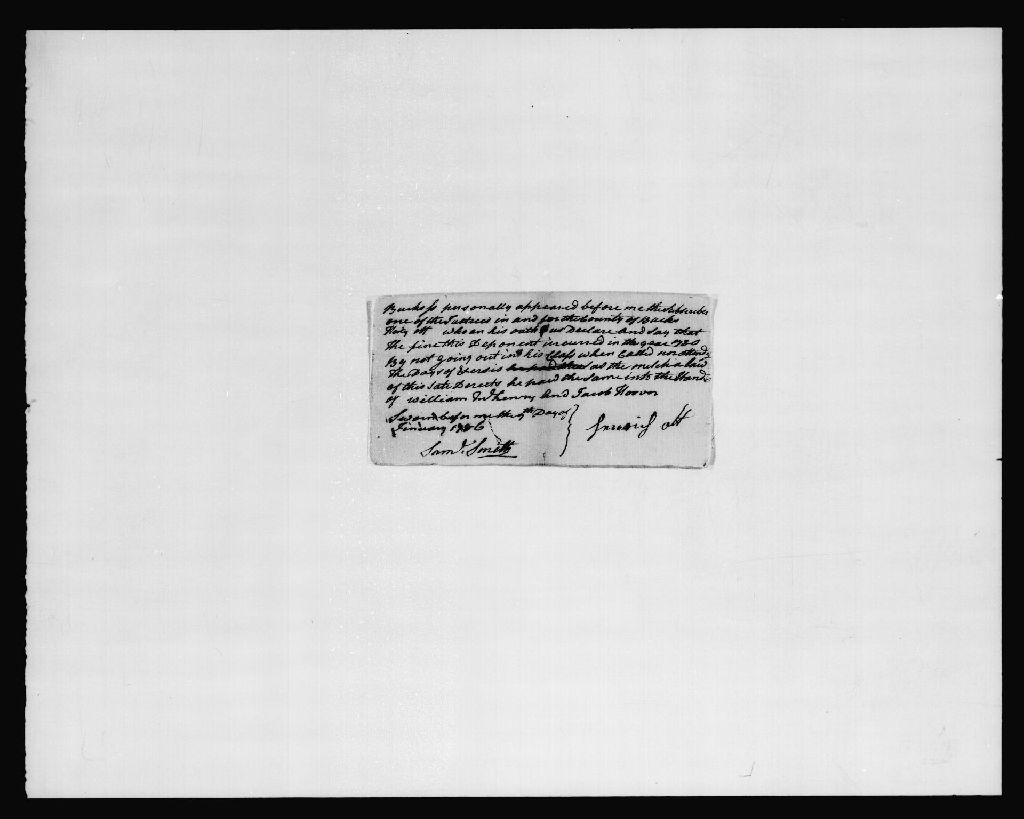 Bucks ss personally appeared before me the Subscriber
one of the Justices in and for the County of Bucks
Henry ott who on his oath Declare And Say that
the fine this Deponent incurred in the year 1780
By not going out in his Class when Called nor attend
the Days of Exersis as the melisha Law
of this Late Derects he paid the same into the Hands
of William McHenry And Jacob Hoover
Sworn before me the 9th Day of
Jinuary 1786
Samd. Smith
Henrich ott